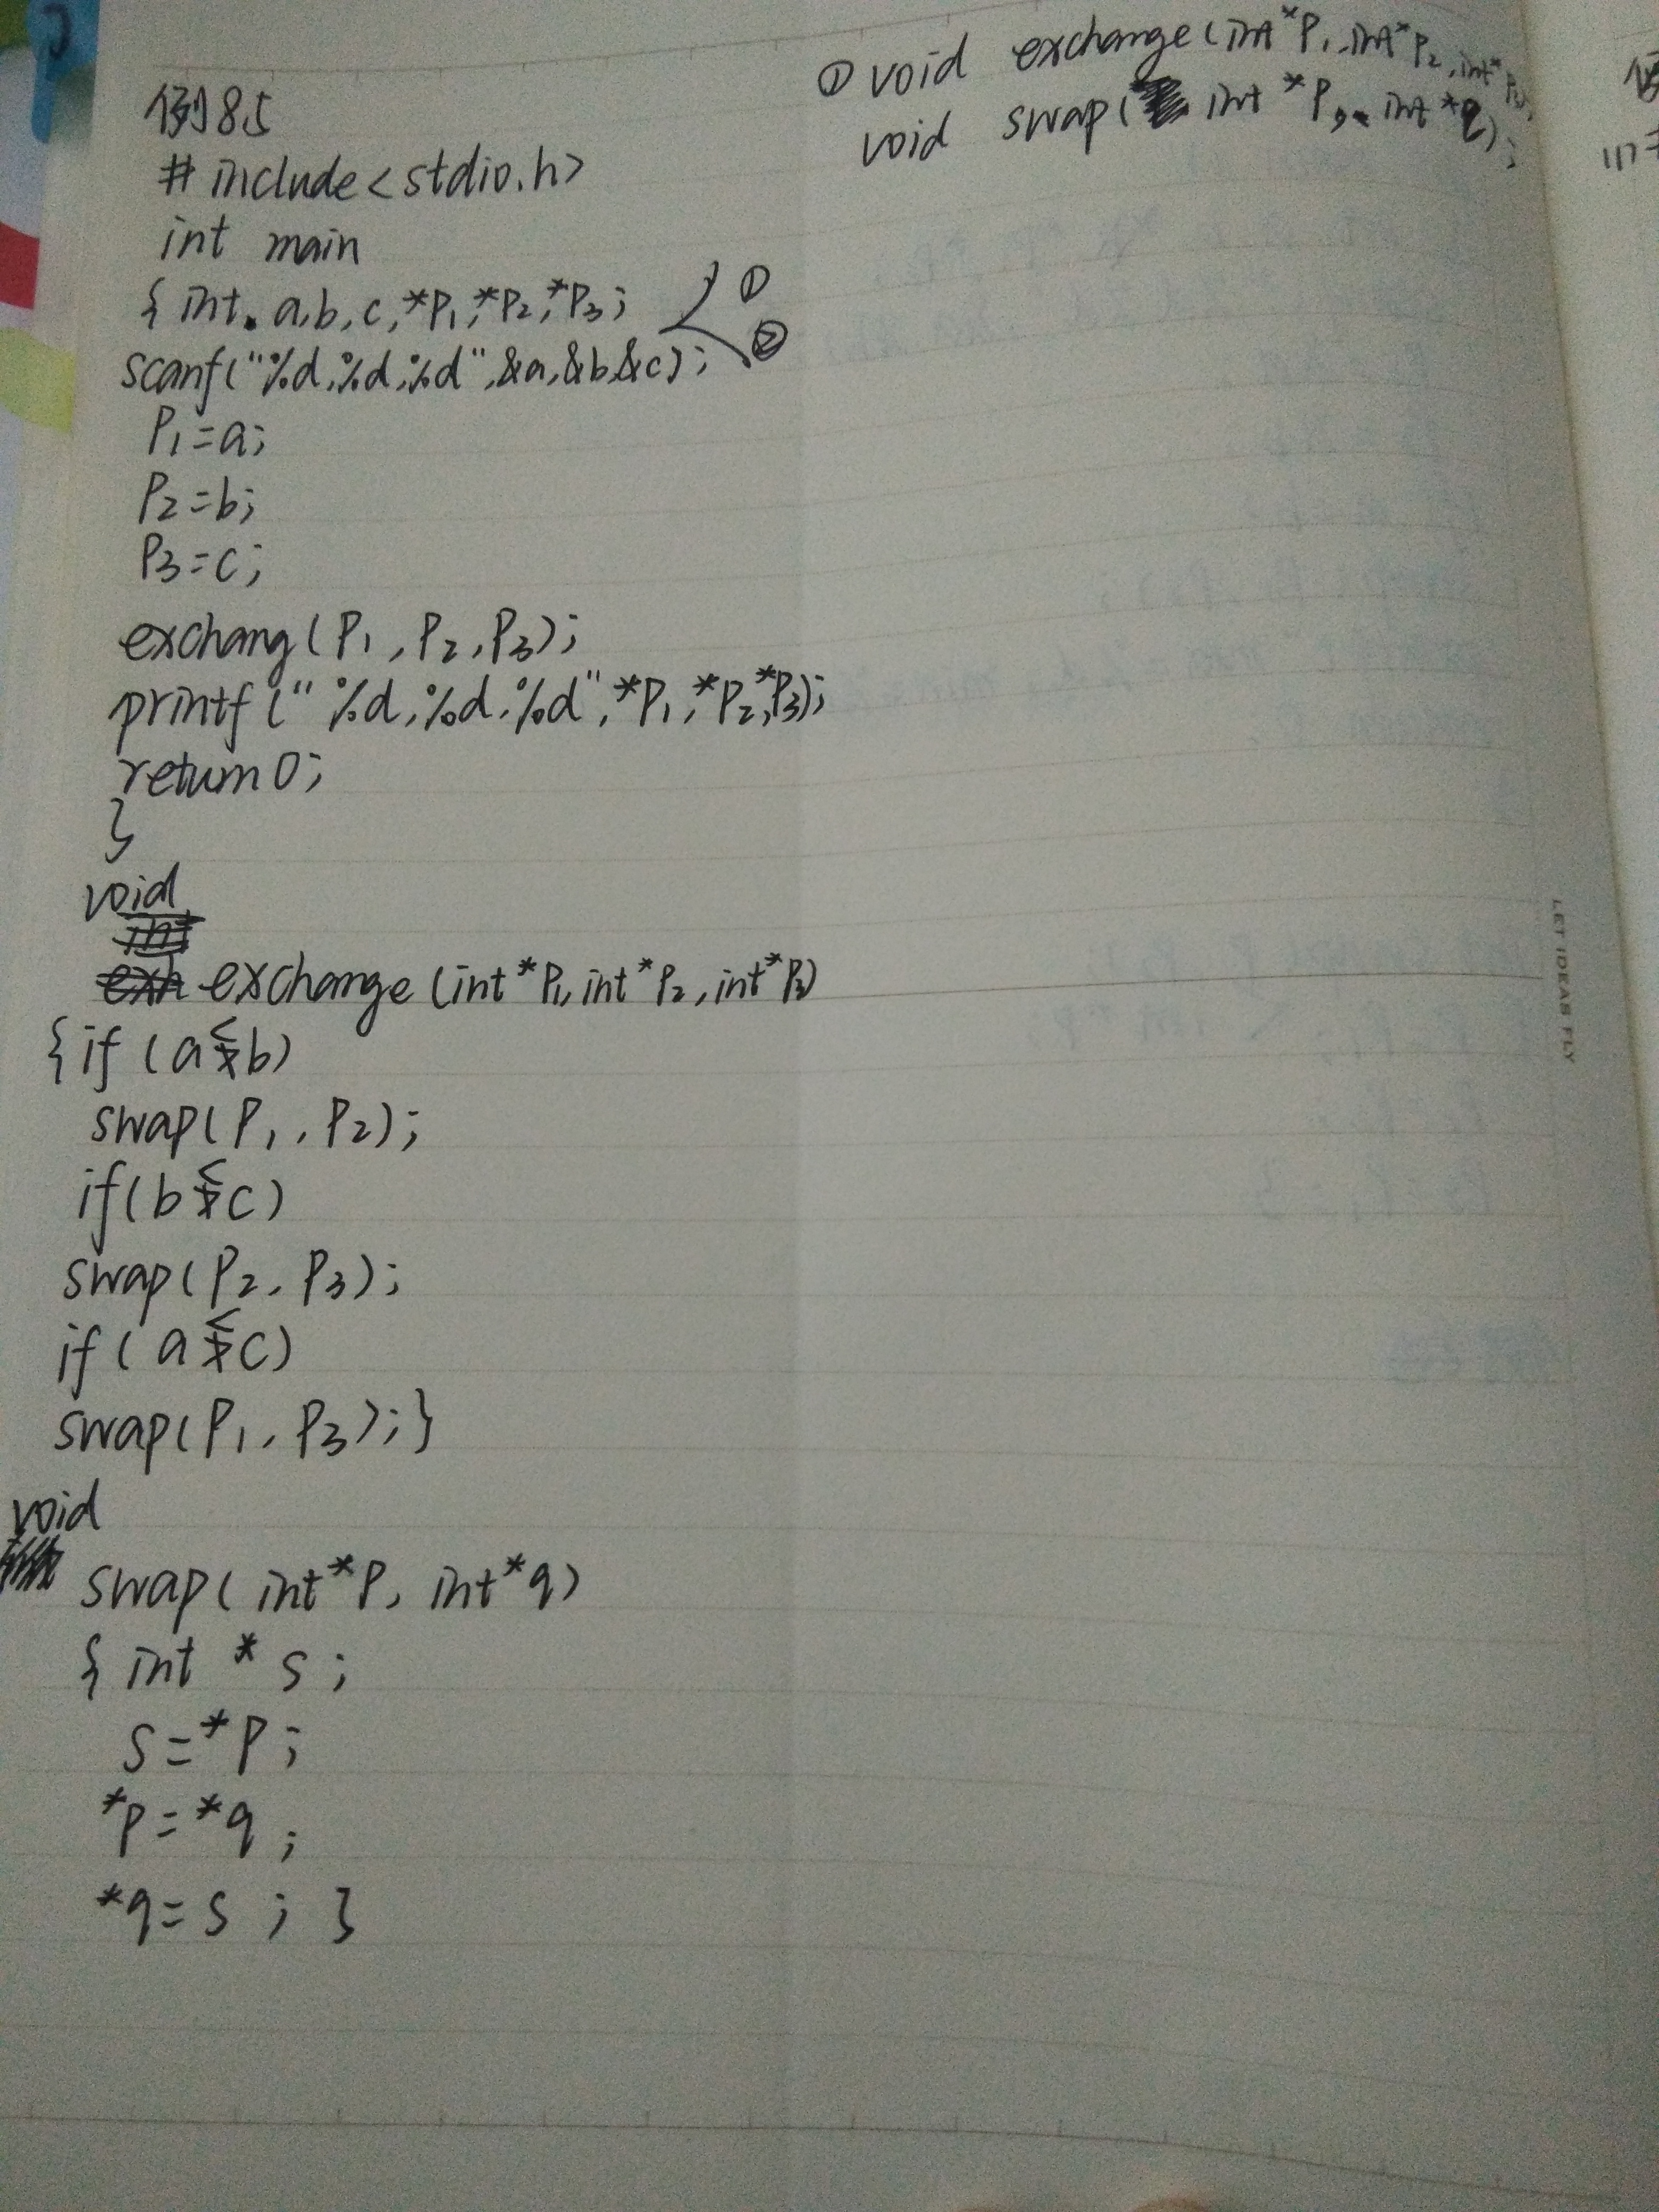 例8.5
#include<stdio.h>
int main
{ int a,b,c,*P1,*P2,*P3; ① ②
scanf("%d,%d,%d",&a,&b,&c);
P1=a;
P2=b;
P3=c;
exchang(P1,P2,P3);
printf("%d,%d,%d",*P1,*P2,*P3);
return 0;
}
void
exchange(int*P1,int*P2,int*P3)
{if(a<b)
swap(P1,P2);
if(b<c)
swap(P2,P3);
if(a<c)
swap(P1,P3);}
void
swap(int*P,int*q)
{int *s;
s=*P;
*P=*q;
*q=s;}
① void exchange(int*P1,int*P2,int*P3);
void swap(int *P,int *q);
LET IDEAS FLY